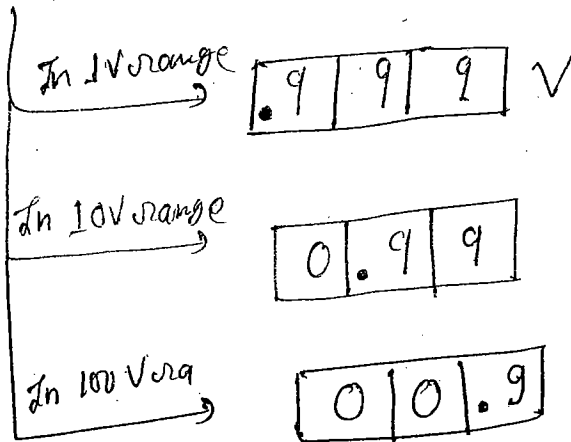 In 1V range .999 V
In 10V range 0.99
In 100 V ra 00.9